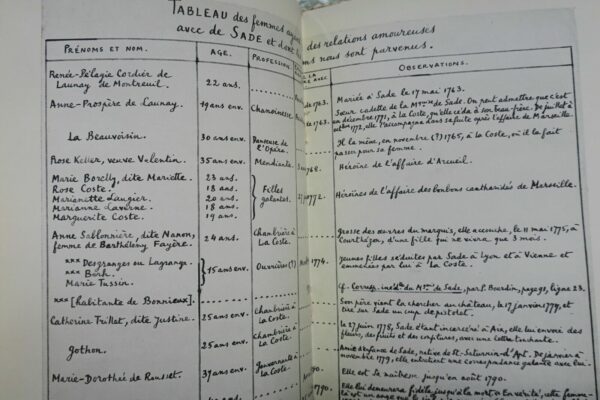 TABLEAU des femmes ayant des relations amoureuses
avec de SADE et dont ns nous sont parvenus.
PRÉNOMS ET NOM. AGE. PROFESSION. OBSERVATIONS.
Renée-Pélagie Cordier de
Launay de Montreuil. 22 ans. 1763. Mariée à Sade le 17 mai 1763.
Anne-Prospère de Launay. 19 ans env. Chanoinesse. de 1763. Sœur cadette de la Mise de Sade. On peut admettre que c'est
en décembre 1771, à la Coste, qu'elle céda à son beau-frère. De juillet à
octobre 1772, elle l'accompagna dans sa fuite après l'affaire de Marseille.
La Beauvoisin. 30 ans env. Danseuse de
l'Opéra. Il la mène, en novembre (?) 1765, à la Coste, où il la fait
passer pour sa femme.
Rose Keller, veuve Valentin. 35 ans env. Mendiante. 1768. Héroïne de l'affaire d'Arcueil.
Marie Borelly, dite Mariette. 23 ans.
Rose Coste. 18 ans.
Marianette Laugier. 20 ans. Filles
galantes. 27 1772. Héroïnes de l'affaire des bonbons cantharidés de Marseille.
Marianne Laverne. 18 ans.
Marguerite Coste. 19 ans.
Anne Sablonnière, dite Nanon,
femme de Barthélémy Fayère. 24 ans. Chambrière à
La Coste. grosse des œuvres du marquis, elle accouche, le 11 mai 1775, à
Courthézon, d'une fille qui ne vivra que 3 mois.
*** Desgranges ou Lagrange.
*** Berh.
Marie Tussin. 15 ans env. Ouvrières (?) 1774. Jeunes filles séduites par Sade à Lyon et à Vienne et
emmenées par lui à La Coste.
*** [habitante de Bonnieux]. Cf. Corresp. inéd. du Mis de Sade, par P. Bourdin, page 9, ligne 23.
Catherine Trillet, dite Justine. 25 ans env. Chambrière à
La Coste. Son père vient la chercher au château, le 17 janvier 1777, et
tire sur Sade un coup de pistolet.
Gothon. 25 ans env. Chambrière à
La Coste. Le 27 juin 1778, Sade étant incarcéré à Aix, elle lui envoie des
fleurs, des fruits et des
Marie-Dorothée de Rousset. 37 ans env. Gouvernante à
La Coste. Amie d'enfance de Sade, native de St-Saturnin-d'Apt. De janvier à
novembre 1779, elle entretient une correspondance galante avec lui.
1790. Elle est sa maîtresse jusqu'en août 1790.
1790. Elle lui demeurera fidèle jusqu'à la mort